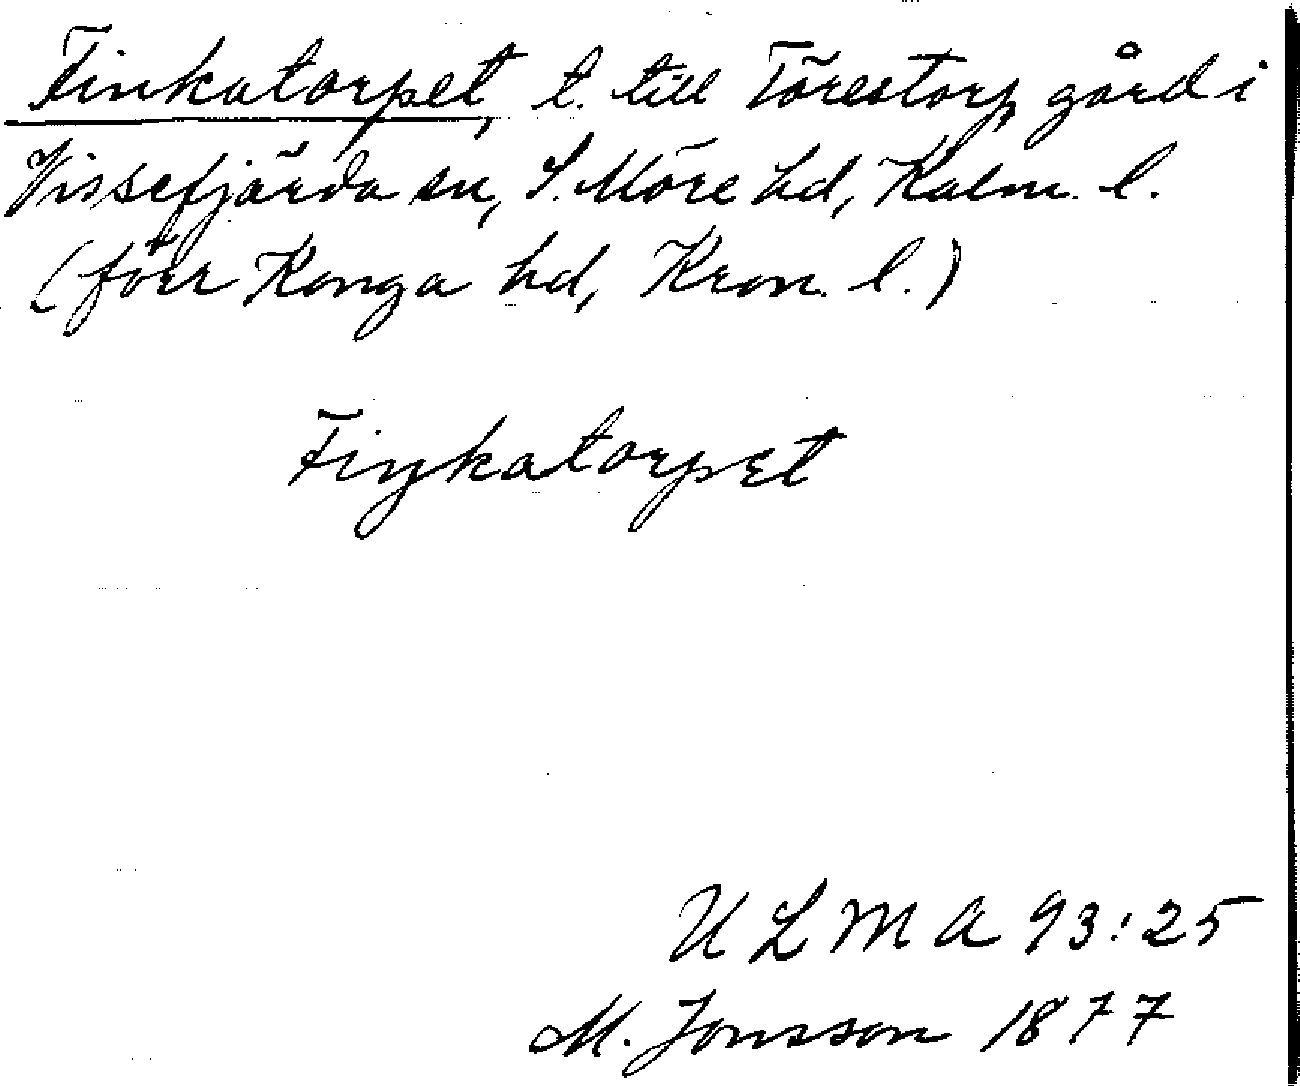 Finkatorpet, t. till Törestorp gård i
Vissefjärda sn, S. Möre hd, Kalm. l.
(förr Konga hd, Kron. l.)
Fiŋkatorpet
ULMA 93:25
M. Jonsson 1877